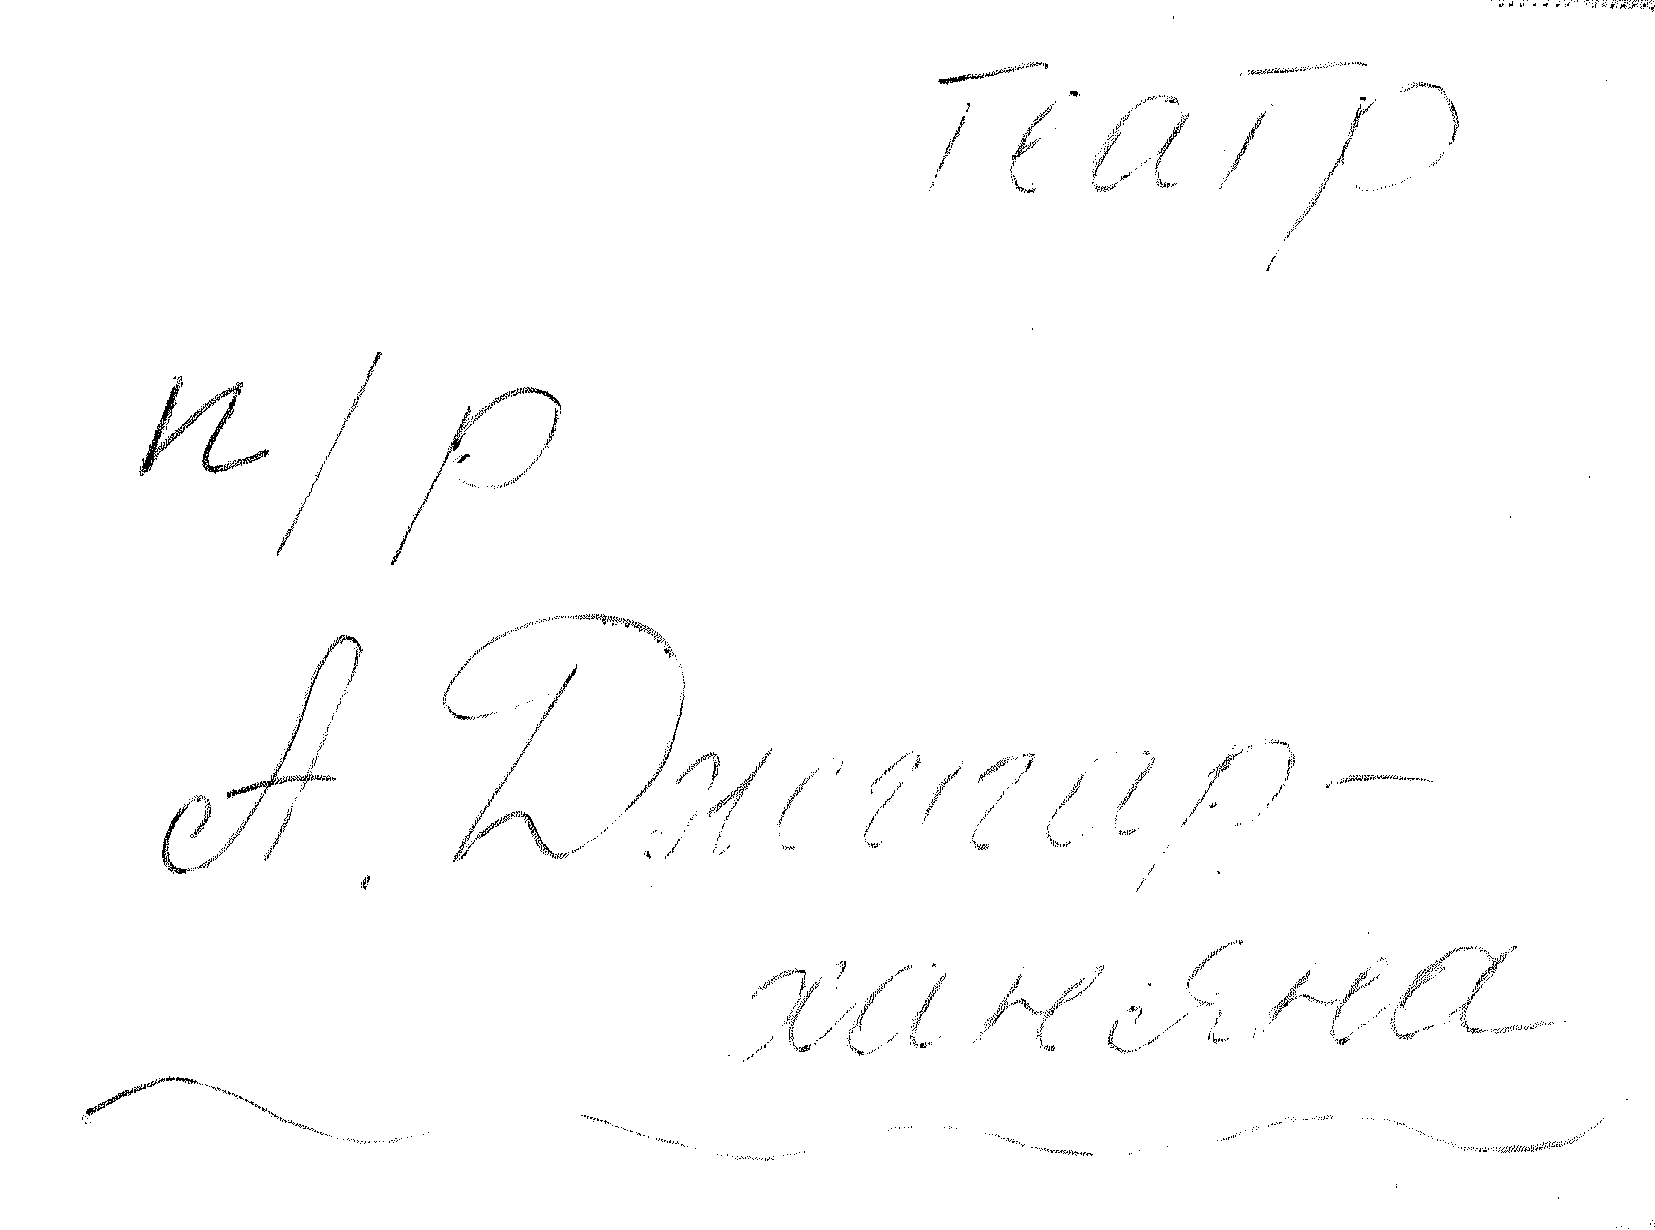 театр
п/р
А. Джигар-
ханяна